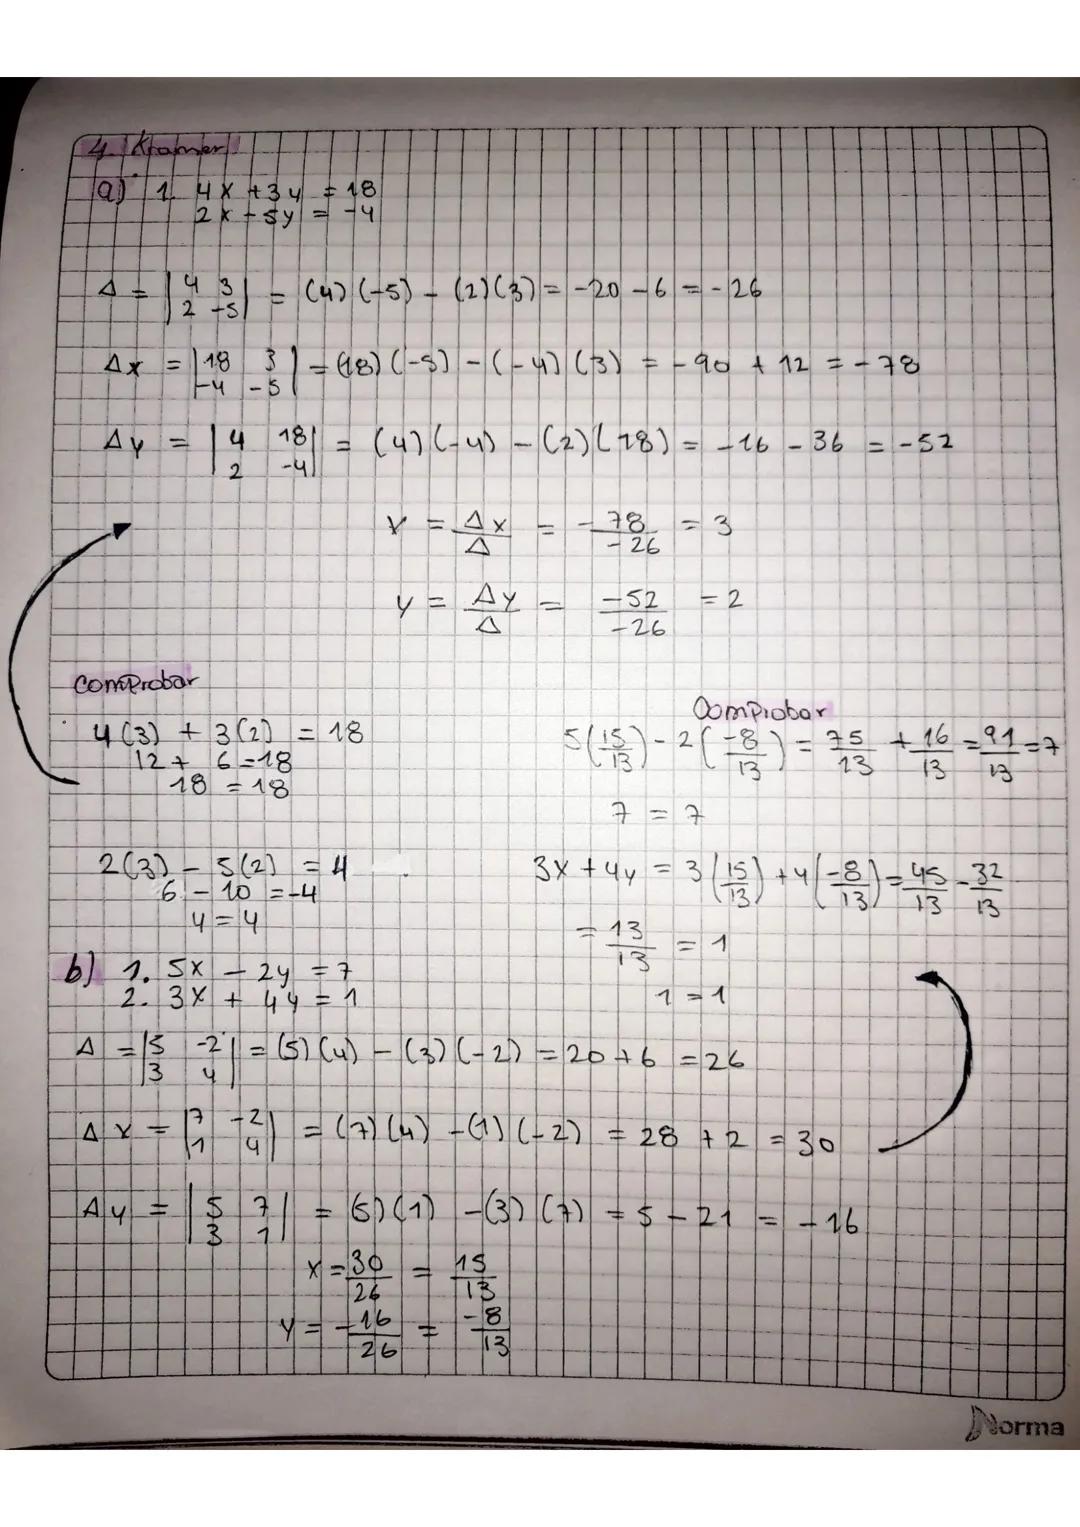 4. Kramer
a) 1. 4x + 3y = 18
2x - 5y = -4
Δ = |4 3| = (4)(-5) - (2)(3) = -20 - 6 = -26
|2 -5|
Δx = |18 3| = (18)(-5) - (-4)(3) = -90 + 12 = -78
|-4 -5|
Δy = |4 18| = (4)(-4) - (2)(18) = -16 - 36 = -52
|2 -4|
x = Δx/Δ = -78/-26 = 3
y = Δy/Δ = -52/-26 = 2
comprobar
4(3) + 3(2) = 18
12 + 6 = 18
18 = 18
2(3) - 5(2) = 4
6 - 10 = -4
4 = 4
Comprobar
5(15/13) - 2(-8/13) = 75/13 + 16/13 = 91/13 = 7
7 = 7
3x + 4y = 3(15/13) + 4(-8/13) = 45/13 - 32/13
= 13/13 = 1
1 = 1
b) 1. 5x - 2y = 7
2. 3x + 4y = 1
Δ = |5 -2| = (5)(4) - (3)(-2) = 20 + 6 = 26
|3 4|
Δx = |7 -2| = (7)(4) - (1)(-2) = 28 + 2 = 30
|1 4|
Δy = |5 7| = (5)(1) - (3)(7) = 5 - 21 = -16
|3 1|
x = 30/26 = 15/13
y = -16/26 = -8/13
Norma